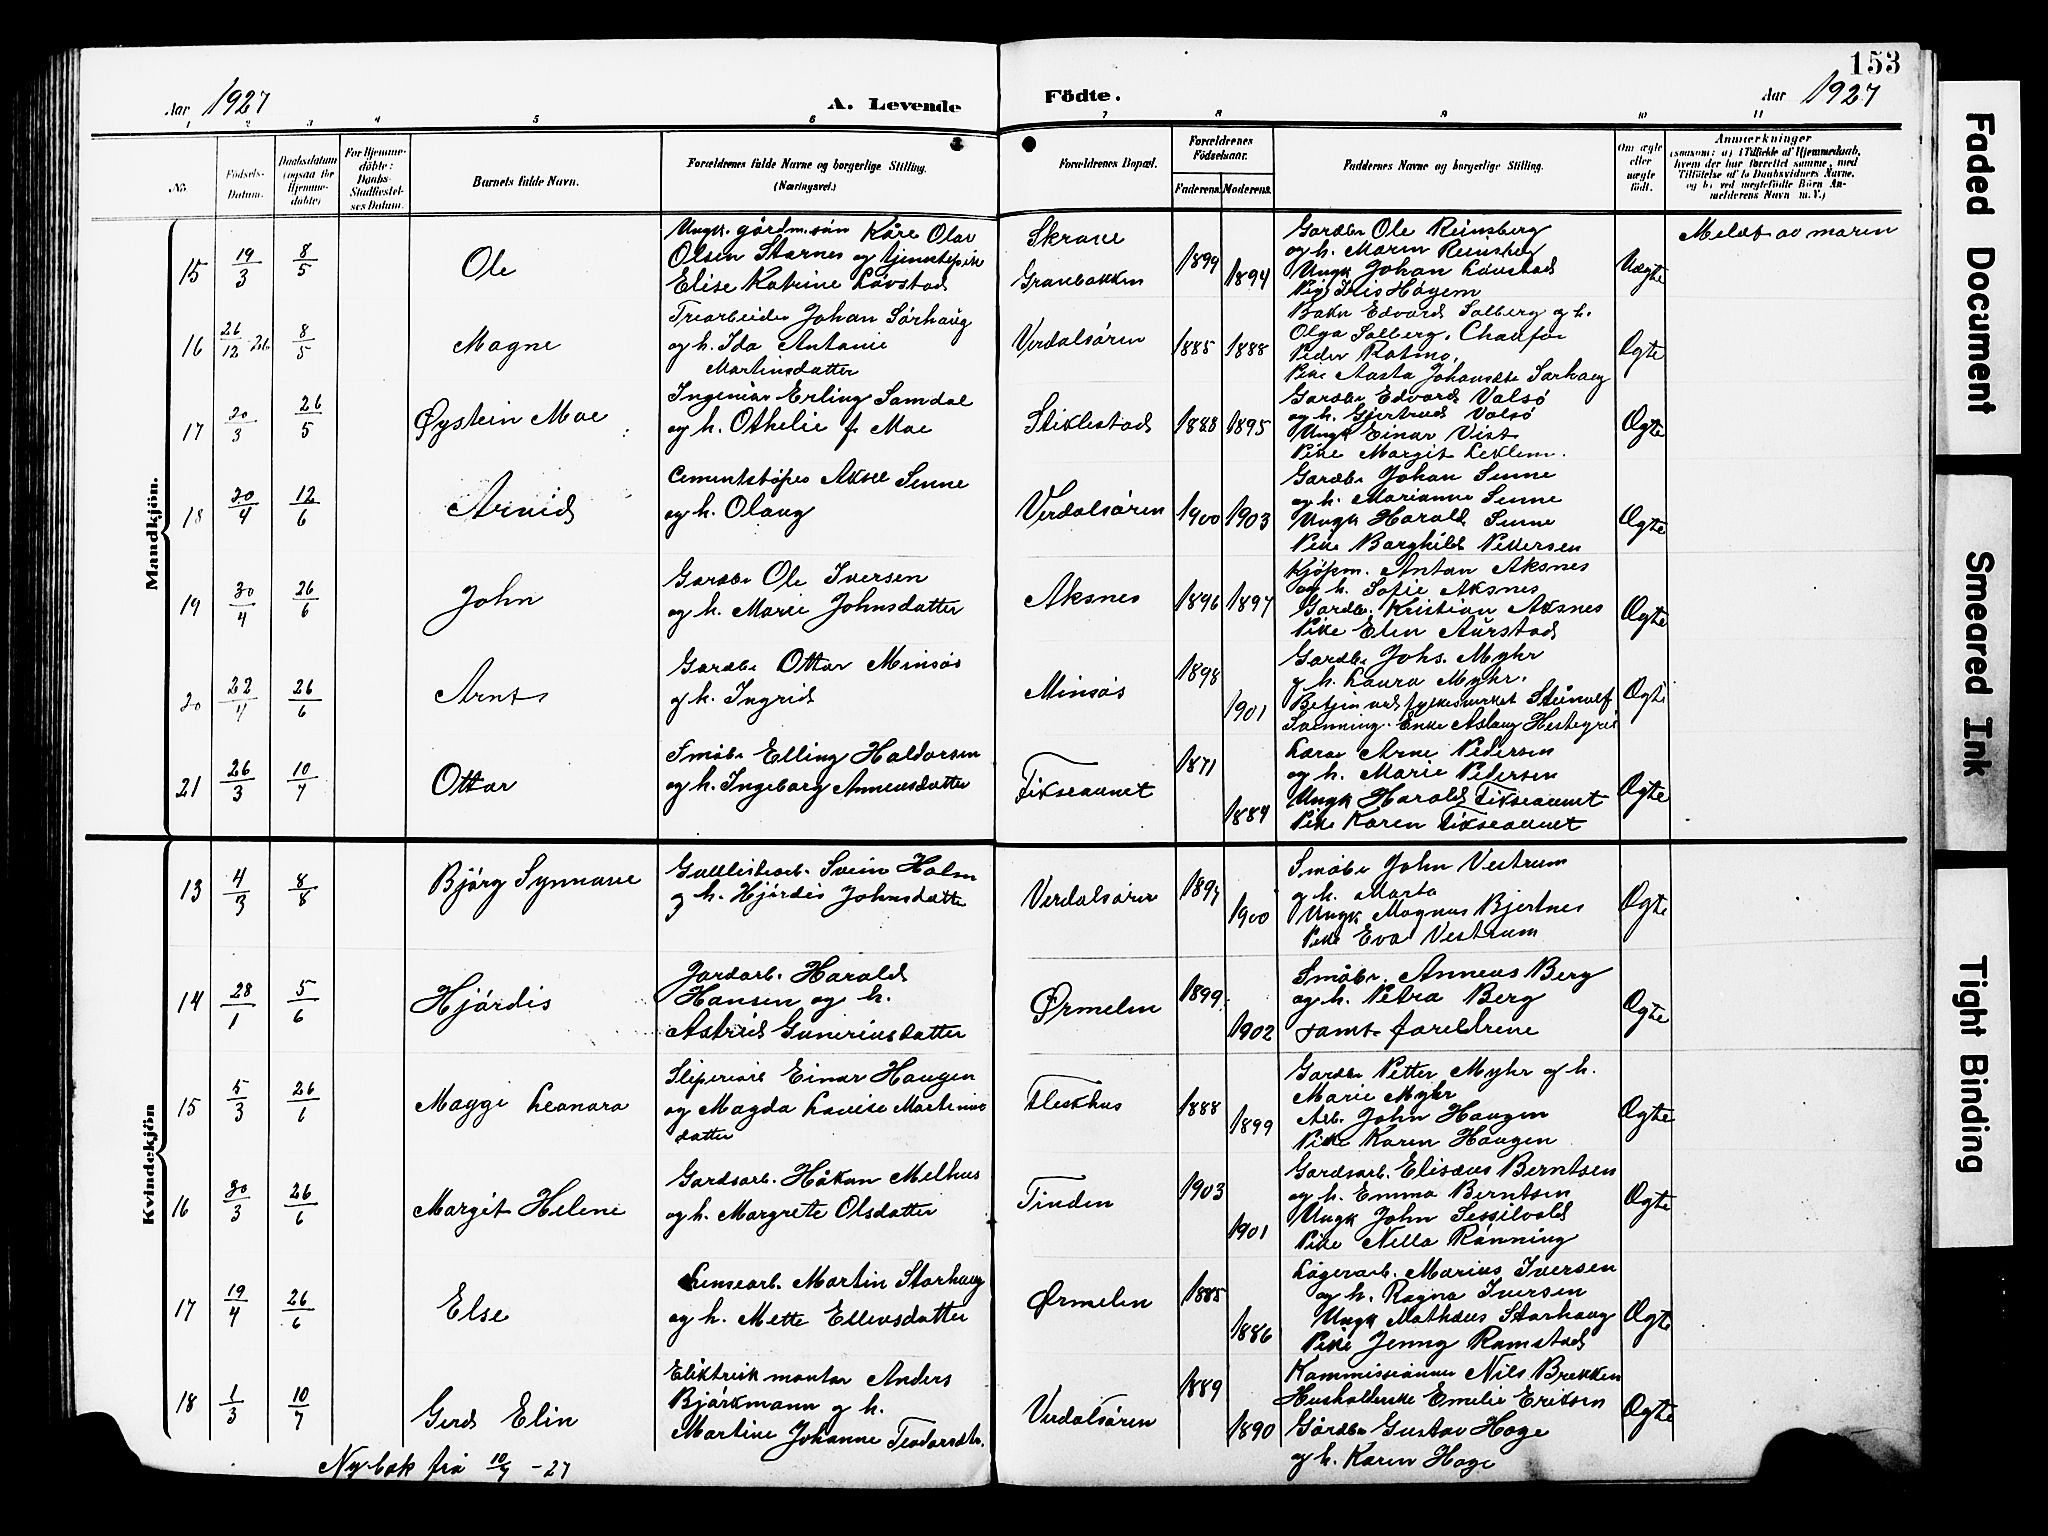 153
Aar 1927 A. Levende Födte. Aar 1927
1 2 3 4 5 6 7 8 9 10 11
No. Födsels-Datum. Daabsdatum (ogsaa for Hjemme-döbte) For Hjemme-döbte: Daabs-Stadfæstelses Datum. Barnets fulde Navn. Forældrenes fulde Navne og borgerlige Stilling. (Næringsvei.) Forældrenes Bopæl. Forældrenes Födselsaar. Faderens. Moderens. Faddernes Navne og borgerlige Stilling. Om ægte eller uægte födt. Anmærkninger
Mandkjön.
15 19/3 8/5 Ole
Ungk. gårdm.sön Kåre Olav
Olsen Starnes og
Elise Katrine Løvstad
1899 1894
Gardbr Ole Reinsberg
og h. Maren Reinsberg
Ungk Johan Løvstad
Uægte
16 26/12 26 8/5 Magne
Trearbeider Johan Sörhaug
og h. Ida Antonie
Martinsdatter
Verdalsören 1885 1888
Edvard Solberg og h.
Olga Solberg, Chauför
Peder Rotmo,
Pike Aasta Sørhaug
Ægte
17 20/3 26/5 Øystein Moe
Ingeniør Erling Samdal
og h. Othelie f. Moe
Stiklestad 1888 1895
Gardbr Edvard Valsö
og h. Gjertrud Valsö
Ungk Einar Vist
Pike Margit Leklem.
Ægte
18 30/4 12/6 Arvid
Cementstøper Aksel Senne
og h. Olaug
Verdalsören 1900 1903
Gardbr Johan Senne
og h. Marianne Senne
Ungk Harald Senne
Pike Borghild Pettersen
Ægte
19 30/4 26/6 John
Gardbr Ole Iversen
og h. Marie Johnsdatter
Aksnes 1896 1897
Kjöpm. Anton Aksnes
og h. Sofie Aksnes
Gardbr. Kristian Aksnes
Pike Elen Aurstad
Ægte
20 22/4 26/6 Arnt
Gardbr Ottar Minsås
og h. Ingrid
Minsås 1898 1901
Gardbr Johs. Myhr
og h. Laura Myhr.
Ægte
21 26/3 10/7 Ottar
Småbr Elling Haldorsen
og h. Ingeborg Anneusdatter
Tikseaunet 1871 1889
Lærer Arne Pedersen
og h. Marie Pedersen
Ungk Harald Tikseaunet
Pike Karen Tikseaunet
Ægte
Kvindekjön
13 4/3 8/8 Bjørg Synnøve
Svein Holm
og h. Hjördis Johnsdatter
Verdalsören 1897 1900
Småbr John Vestrum
og h. Marta
Ungk Magnus Bjertnes
Pike Eva Vestrum
Ægte
14 28/1 5/6 Hjördis
Jordarb. Harald
Hansen og h.
Astrid Guneriusdatter
Ørmelen 1899 1902
Småbr. Anneus Berg
og h. Petra Berg
samt foreldrene
Ægte
15 5/3 26/6 Maggi Leonora
Sliperiarb Einar Haugen
og Magda Lovise Martinus
datter
Fleskhus 1888 1899
Gardbr Petter Myhr og h.
Marie Myhr
Arb. John Haugen
Pike Karen Haugen
Ægte
16 30/3 26/6 Margit Helene
Gardsarb. Håkon Melhus
og h. Margrete Olsdatter
Tinden 1903 1901
Gardsarb. Elisæus Berntsen
og h. Emma Berntsen
Ungk John Sessilvold
Pike Nella Rønning
Ægte
17 19/4 26/6 Else
Lensearb. Martin Storhaug
og h. Mette Ellevsdatter
Ørmelen 1885 1886
Lagerarb. Marius Iversen
og h. Ragna Iversen
Ungk Mathæus Storhaug
Pike Jenny Ramstad
Ægte
18 1/3 10/7 Gerd Elin
Elektrisk montør Anders
Bjørkmann og h.
Martine Johanne Teodorsdtr.
Verdalsören 1889 1890
Kommissionær Nils Brekken
Husholderske Emelie Eriksen
Gårdbr Gustav Hage
og h. Karen Hage
Ægte
Ny bok fra 10/7 -27
Faded Document
Smeared Ink
Tight Binding